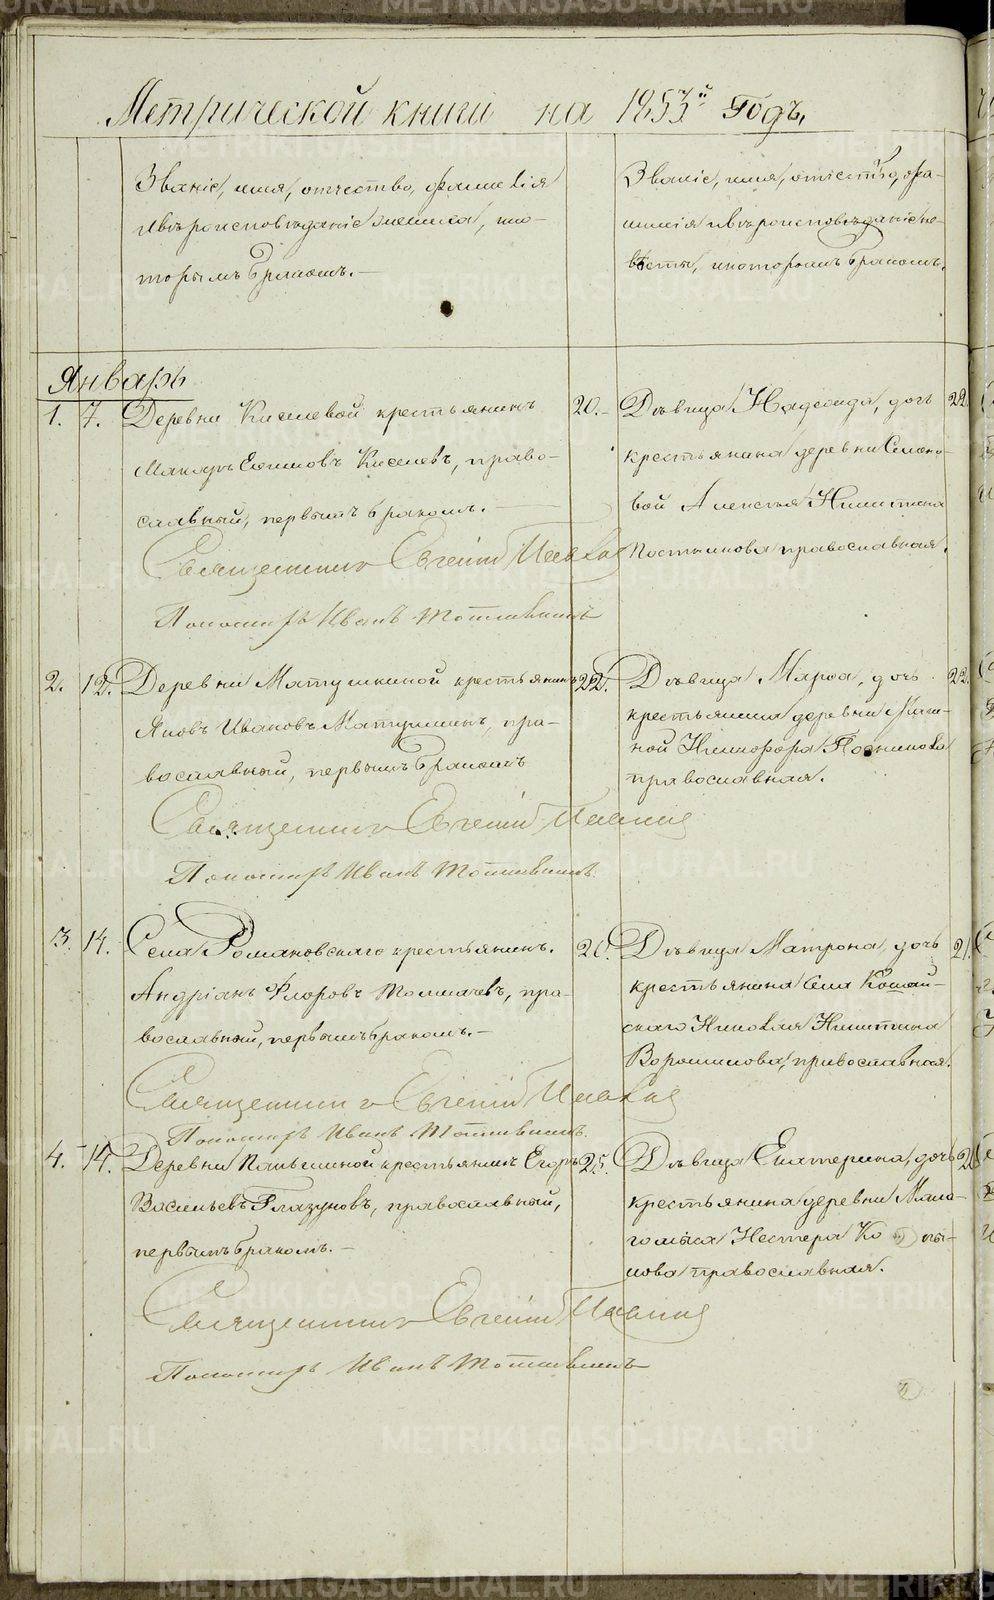 Метрической книги на 1853й Годъ,
Званіе, имя, отчество, фамилія
и вѣроисповѣданіе жениха, ко-
торымъ бракомъ.-
Званіе, имя, отчество, фа-
милія и вѣроисповѣданіе не-
вѣсты, и которымъ бракомъ.
Январь
1. 7. Деревни Киселевой крестьянинъ 20.-
Макаръ Ефимовъ Киселевъ, право-
славный, первымъ бракомъ. -
Священникъ Евгеній
Пономарь Иванъ
Дѣвица Надежда, дочь 22.
крестьянина деревни Семено-
вой Алексѣя Никитина
Постникова православная.
2. 12. Деревни Матушкиной крестьянинъ 22.
Яковъ Ивановъ Матушкинъ, пра-
вославный, первымъ бракомъ
Священникъ Евгеній
Пономарь Иванъ
Дѣвица Марфа, дочь 22.
крестьянина деревни
ной Никифора
православная.
3. 14. Села Романовскаго крестьянинъ. 20.
Андріанъ Флоровъ Толмачевъ, пра-
вославный, первымъ бракомъ.-
Священникъ Евгеній
Пономарь Иванъ
Дѣвица Матрона, дочь 21.
крестьянина Села Кошай-
скаго Николая Никитина
Ворошилова, православная.
4. 14. Деревни крестьянинъ Егоръ 25.
Васильевъ Глазуновъ, православный,
первымъ бракомъ. -
Священникъ Евгеній
Пономарь Иванъ
Дѣвица Екатерина, дочь
крестьянина деревни
Нестера
православная.
METRIKI.GASO-URAL.RU